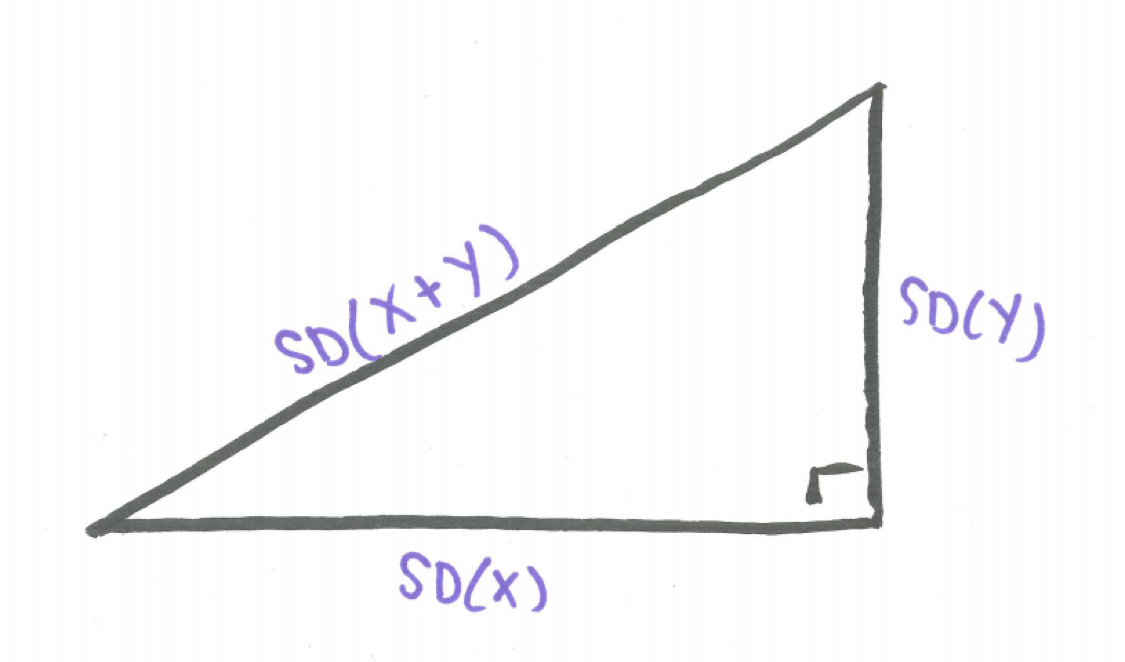 SD(X+Y)
SD(Y)
SD(X)